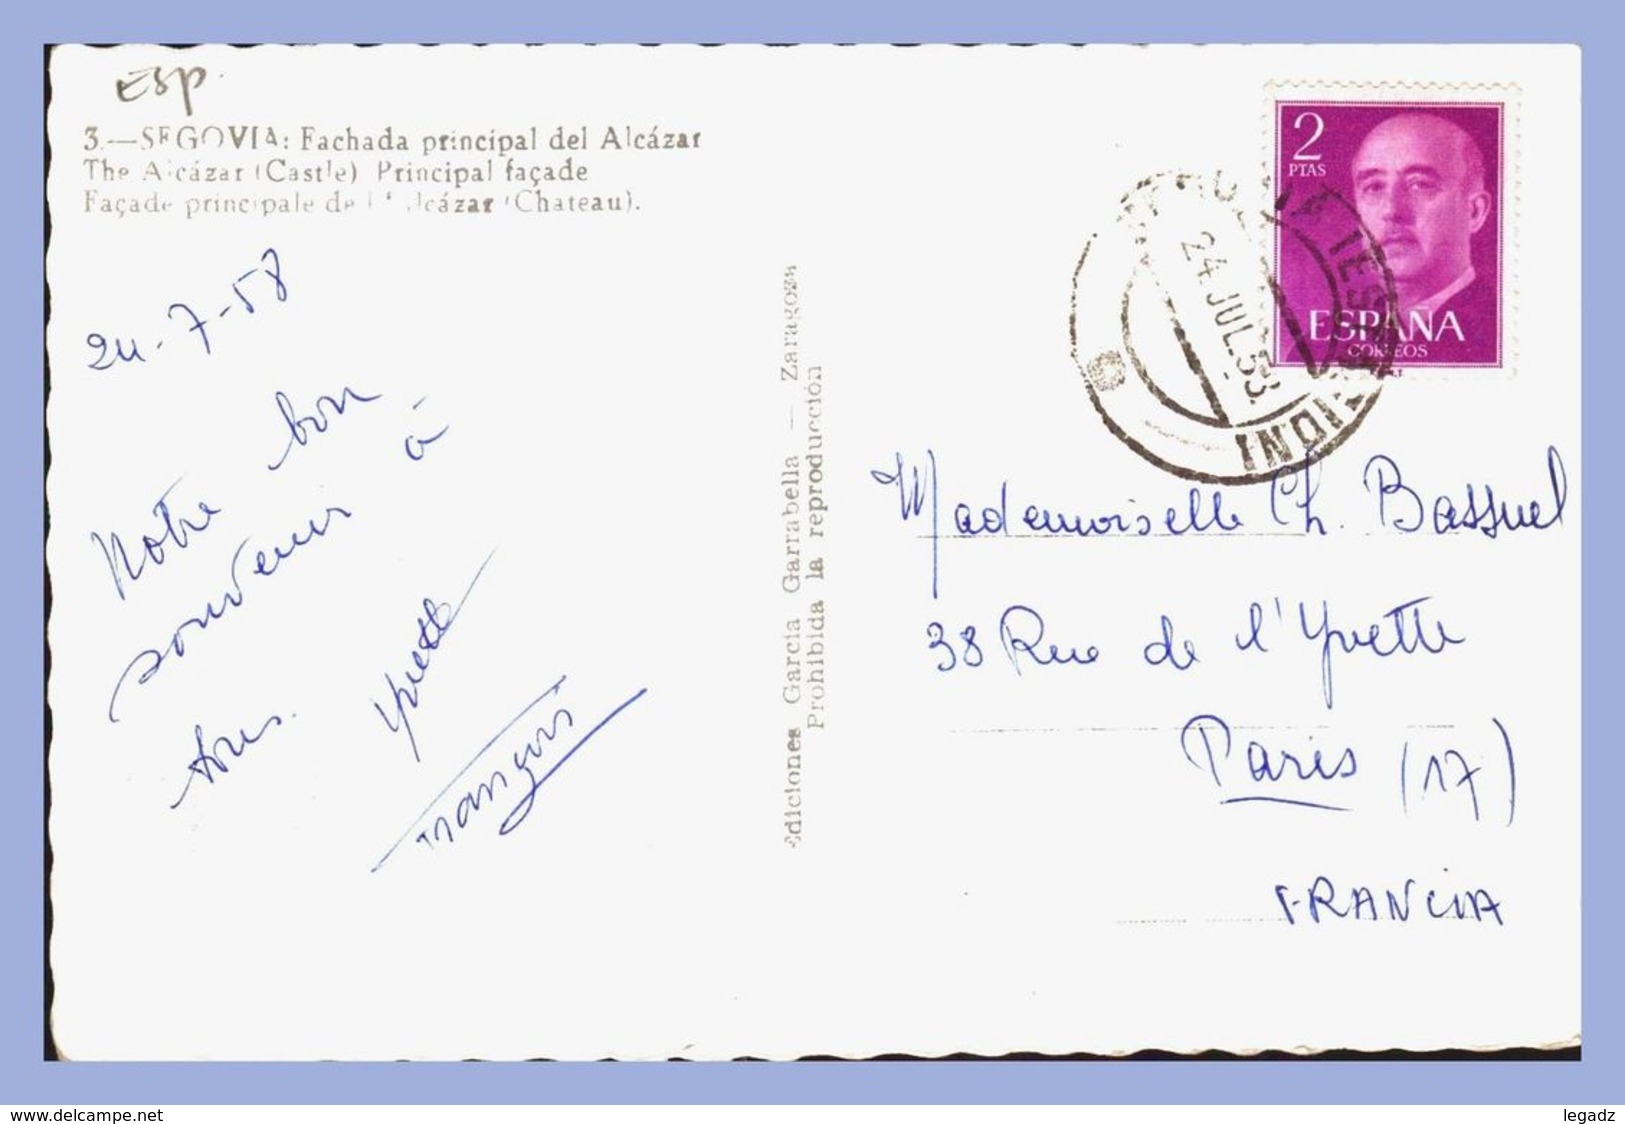 ESP.
3.—SEGOVIA: Fachada principal del Alcázar
The Alcázar (Castle) Principal façade
Façade principale de l' Alcázar (Chateau).
24-7-58
Notre bon
souvenir à
tous.
Yvette
François
Ediciones García Garrabella — Zaragoza
Prohibida la reproducción
2
PTAS
ESPAÑA
CORREOS
24 JUL. 58
Mademoiselle Ch. Bassuel
38 Rue de l'Yvette
Paris (17)
FRANCIA
www.delcampe.net
legadz